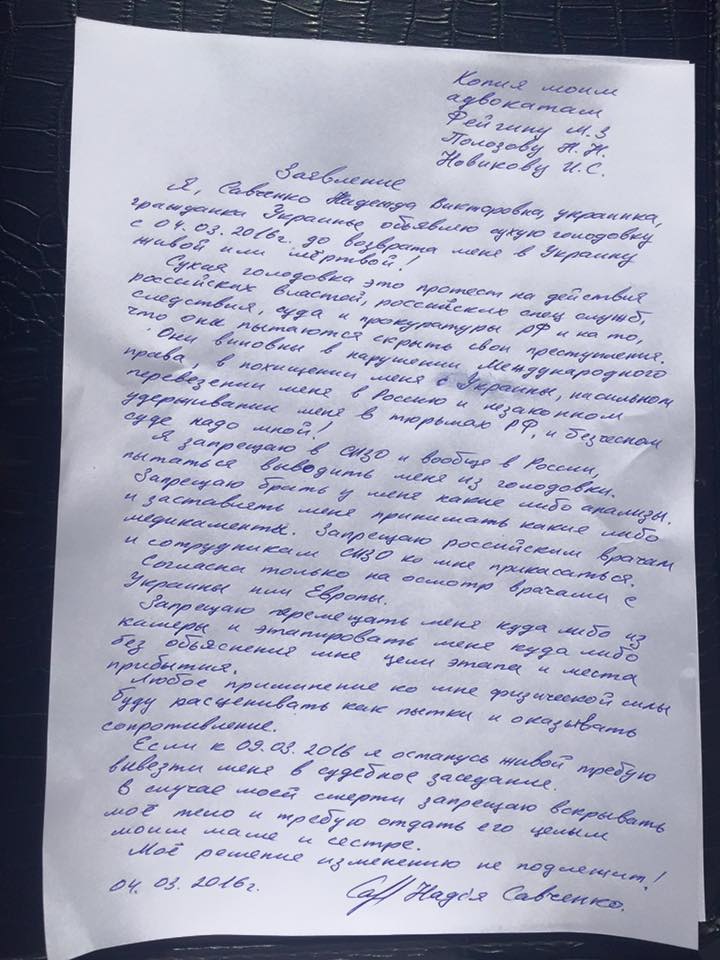 Копия моим
адвокатам
Фейгину М.З
Полозову Н.Н.
Новикову И.С.
Заявление
Я, Савченко Надежда Викторовна, украинка,
гражданка Украины объявляю сухую голодовку
с 04.03.2016г. до возврата меня в Украину
живой или мёртвой!
Сухая голодовка это протест на действия
российских властей, российских спец служб,
следствия, суда и прокуратуры РФ и на то,
что они пытаются скрыть свои преступления.
Они виновны в нарушении Международного
права, в похищении меня с Украины, насильном
перевезении меня в Россию и незаконном
удерживании меня в тюрьмах РФ, и безчесном
суде надо мной!
Я запрещаю в СИЗО и вообще в России,
пытаться выводить меня из голодовки.
Запрещаю брать у меня какие либо анализы.
и заставлять меня принимать какие либо
медикаменты. Запрещаю российским врачам
и сотрудникам СИЗО ко мне прикасаться.
Согласна только на осмотр врачами с
Украины или Европы.
Запрещаю перемещать меня куда либо из
камеры и этапировать меня куда либо
без обьяснения мне цели этапа и места
прибытия.
Любое приминение ко мне физической силы
буду расценивать как пытки и оказывать
сопротивление.
Если к 09.03.2016 я останусь живой требую
вывезти меня в судебное заседание.
В случае моей смерти запрещаю вскрывать
моё тело и требую отдать его целым
моим маме и сестре.
Моё решение изменению не подлещит!
04.03.2016г. Надія Савченко.